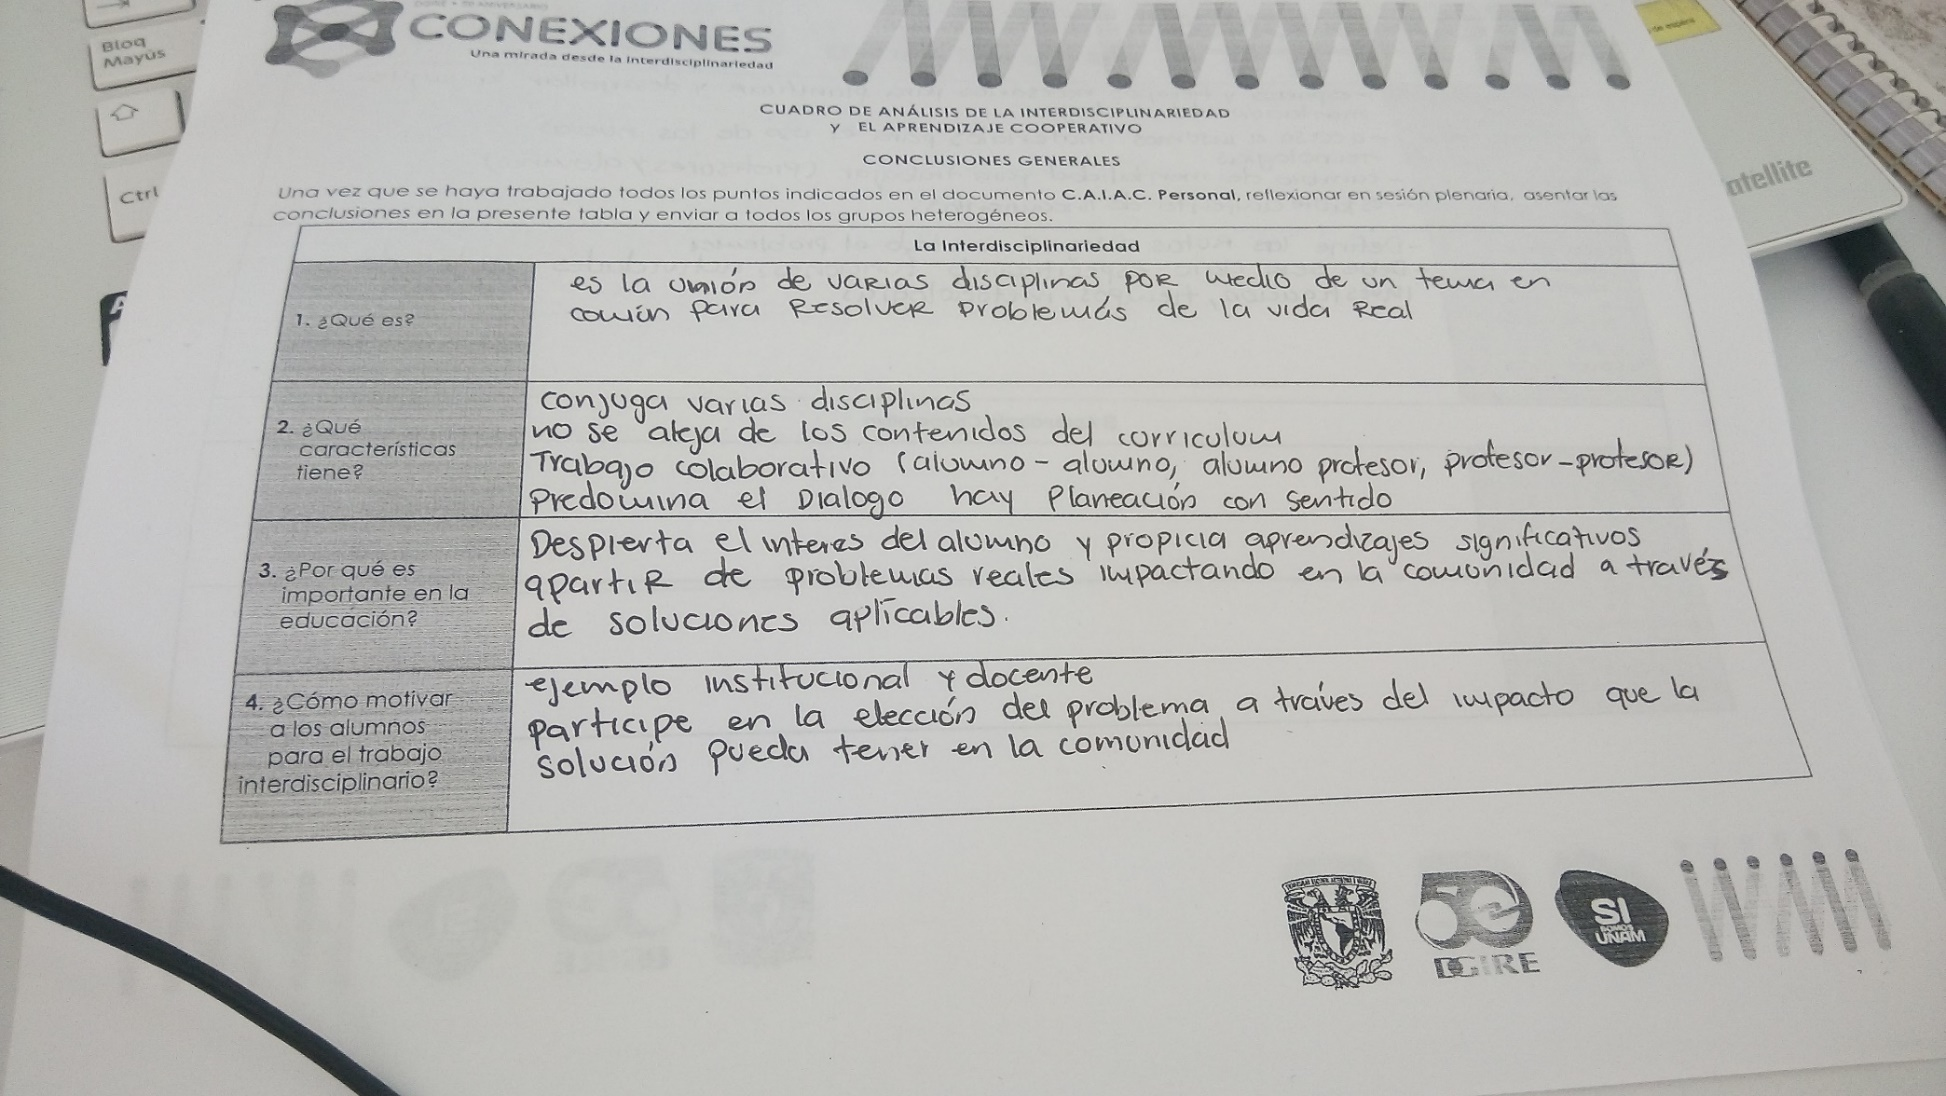 Bloq
Mayús
Ctrl
CONEXIONES
Una mirada desde la interdisciplinariedad
CUADRO DE ANÁLISIS DE LA INTERDISCIPLINARIEDAD
Y EL APRENDIZAJE COOPERATIVO
CONCLUSIONES GENERALES
Una vez que se haya trabajado todos los puntos indicados en el documento C.A.I.A.C. Personal, reflexionar en sesión plenaria, asentar las
conclusiones en la presente tabla y enviar a todos los grupos heterogéneos.
La Interdisciplinariedad
1. ¿Qué es?
es la unión de varias disciplinas por medio de un tema en
común para Resolver problemás de la vida Real
2. ¿Qué
características
tiene?
conjuga varias disciplinas
no se aleja de los contenidos del curriculum
Trabajo colaborativo (alumno - alumno, alumno profesor, profesor-profesor)
Predomina el Dialogo hay Planeación con sentido
3. ¿Por qué es
importante en la
educación?
Despierta el interes del alumno y propicia aprendizajes significativos
apartir de problemas reales impactando en la comunidad a través
de soluciones aplicables.
4. ¿Cómo motivar
a los alumnos
para el trabajo
interdisciplinario?
ejemplo institucional y docente
participe en la elección del problema a tráves del impacto que la
solución pueda tener en la comunidad
atellite
50
DGIRE
SI
SOMOS
UNAM